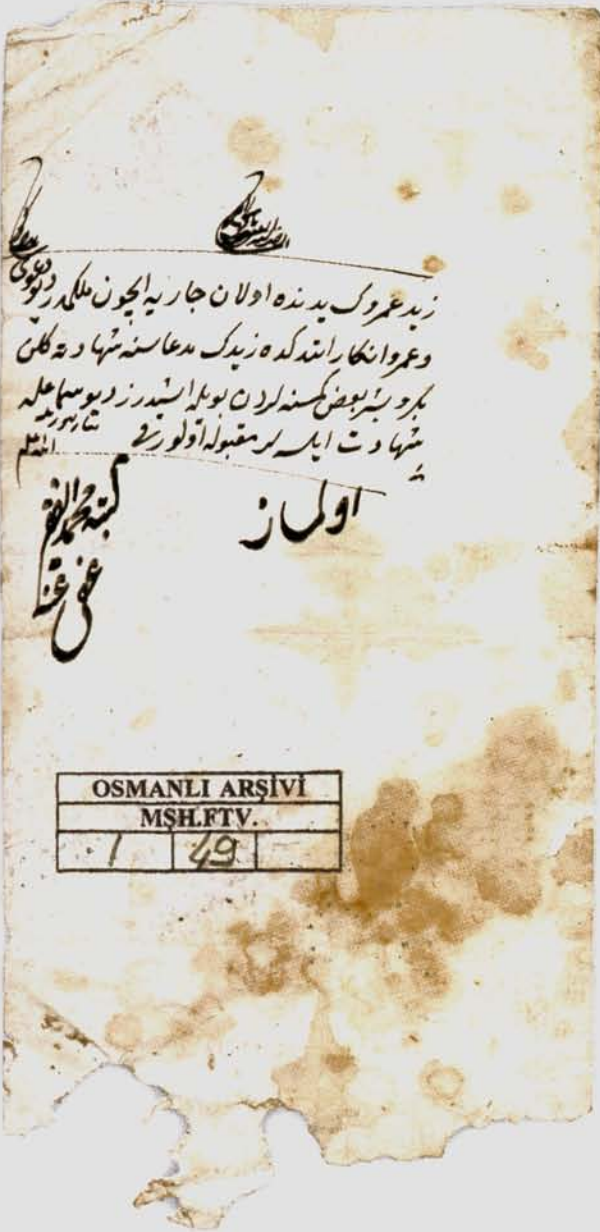 زيد عمروك يدنده اولان جاريه ايچون ملكمدر ديو دعوى
وعمرو انكار ايتدكده زيدك مدعاسنه شهادته كلن
بكر و بشر بعض كمسنه لردن بويله ايشيدرز ديو سماعله
شهادت ايلسه لر مقبوله اولورمى
الله اعلم
اولماز
كتبه محمد
عفى عنه
OSMANLI ARŞİVİ
MŞH.FTV.
1 49